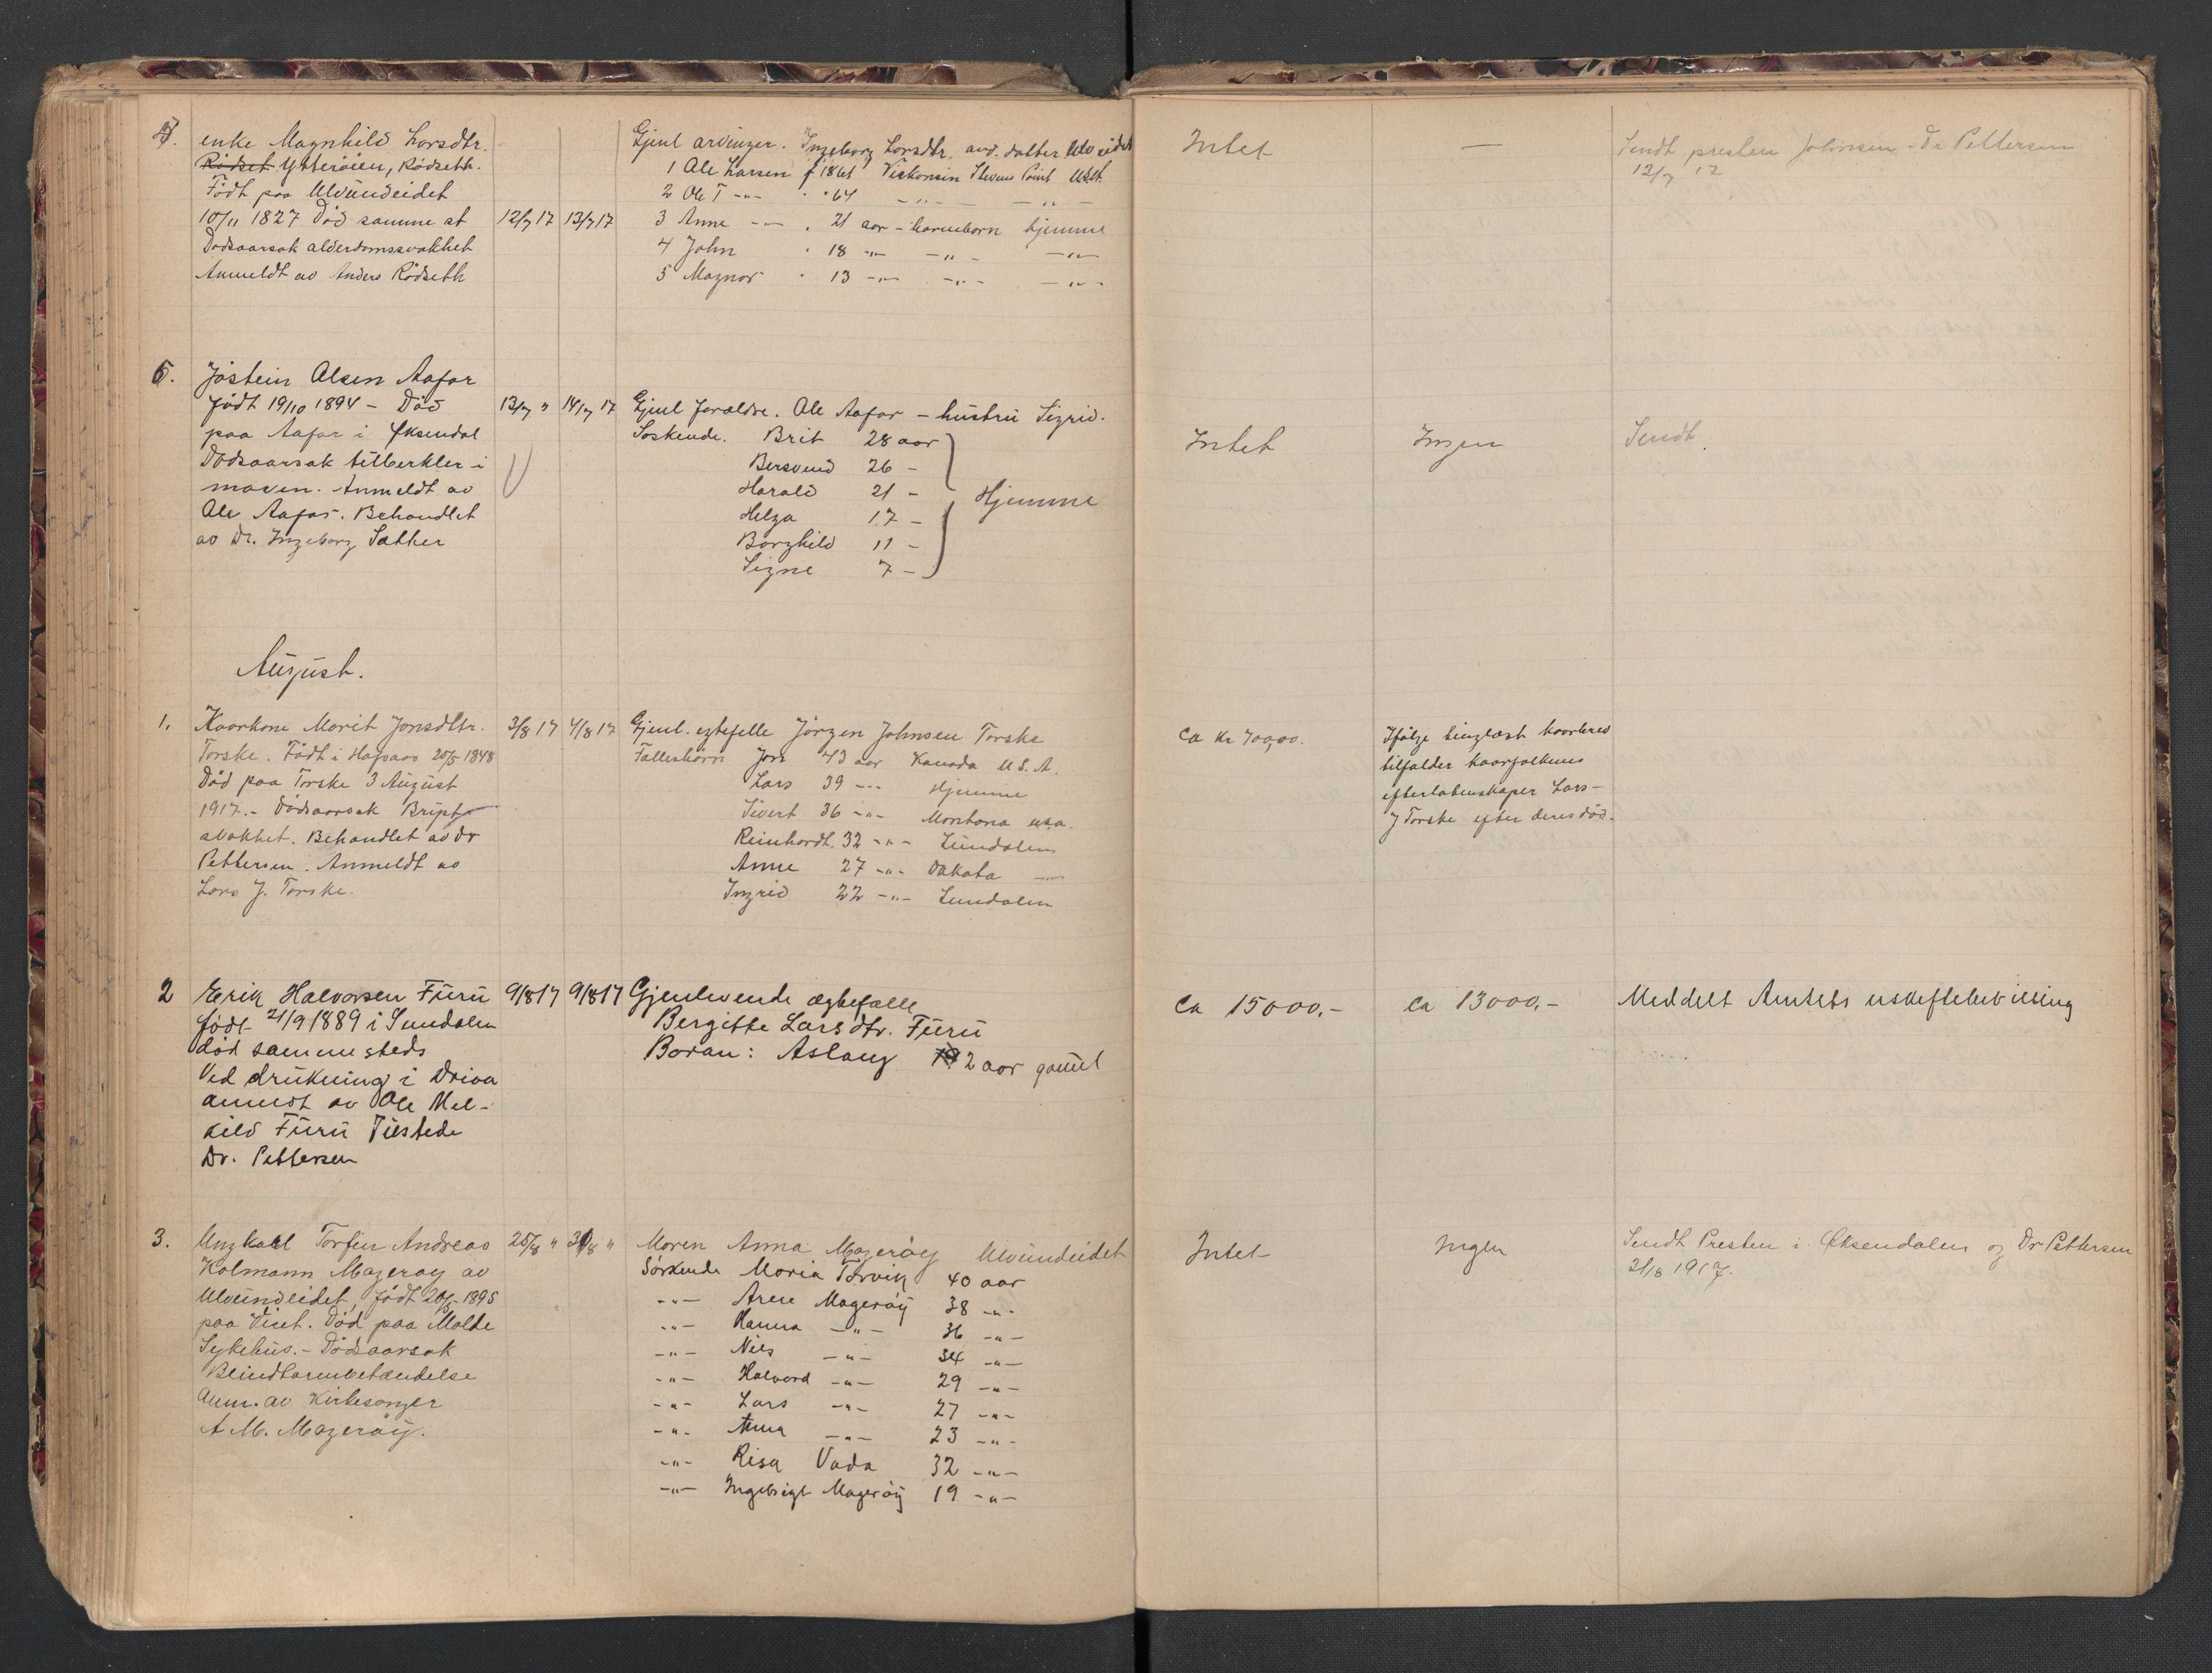 4. enke Magnhild Larsdtr.
Rödset Ytteröien, Rödseth.
Födt paa Ulvundeidet
10/11 1827 Död samme st
Dödsaarsak alderdomssvakhet
Anmeldt av Anders Rödseth
12/7 17 13/7 17
Gjenl arvinger. Ingeborg Larsdtr. avd. datter
1 Ole Larsen f 1861 Viskonsin Stevens Point U.S.A.
2 Ole T -"- " 64 -"- -"-
3 Anne -"- " 21 aar - barnebarn hjemme
4 John " 18 -"- -"- -"-
5 Magnar " 13 -"- -"- -"-
Intet
—
Sendt presten Johnsen - Dr Pettersen
12/7 17
5. Jostein Olsen Aafar
födt 19/10 1894 - Död
paa Aafar i Øksendal
Dödsaarsak tuberkler i
maven. Anmeldt av
Ole Aafar. Behandlet
av Dr. Ingeborg Sæther
13/7 " 14/7 17
Gjenl forældre. Ole Aafar - hustru Sigrid.
Söskende. Brit 28 aar
Bersvend 26 -
Harald 21 -
Helga 17 -
Borghild 11 -
Signe 7 -
Hjemme
Intet
Ingen
Sendt.
August.
1. Kaarkone Marit Jonsdtr.
Torske. Födt i Hafsaas 20/5 1848
Död paa Torske 3 August
1917.- Dödsaarsak Bryst
svakhet. Behandlet av dr
Pettersen. Anmeldt av
Lars J. Torske.
3/8 17 4/8 17
Gjenl. egtefelle Jörgen Johnsen Torske
Fællesbarn Jon 43 aar Kanada U.S.A.
Lars 39 -"- Hjemme
Sivert 36 -"- Montana usa.
Reinhardt. 32 -"- Sundalen
Anne 27 -"- Dakota -"-
Ingrid 22 -"- Sundalen
Ca kr 700,00.
Ifölge tinglæst kaarbrev
tilfalder kaarfolkenes
efterlatenskaper Lars -
J Torske efter deres död.
2 Erik Halvorsen Furu
født 21/9 1889 i Sundalen
död sammesteds
Ved drukning i Driva
anmeldt av Ole Mel-
kild Furu Tilstede
Dr. Pettersen
9/8 17 9/8 17
Gjenlevende ægtefælle
Bergitte Larsdtr. Furu
Barn: Aslaug 2 aar gamel
Ca 15000,-
Ca 13000,-
Meddelt Amtets uskiftebevilling
3. Ungkall Torfin Andreas
Kolmann Mageröy av
Ulvundeidet, födt 20/5 1895
paa Viset. Död paa Molde
Sykehus.- Dödsaarsak
Blindtarmbetændelse
Anm. av Kirkesanger
A M. Mageröy.
25/8 " 31/8 "
Moren Anna Mageröy Ulvundeidet
Söskende Maria Torvik 40 aar
-"- Arne Mageröy 38 -"-
-"- Hanna -"- 36 -"-
-"- Nils -"- 34 -"-
-"- Halvard -"- 29 -"-
-"- Lars -"- 27 -"-
-"- Anna -"- 23 -"-
-"- Risa Vada 32 -"-
-"- Ingebrigt Mageröy 19 -"-
Intet
Ingen
Sendt Presten i Øksendalen og Dr Pettersen
31/8 1917.